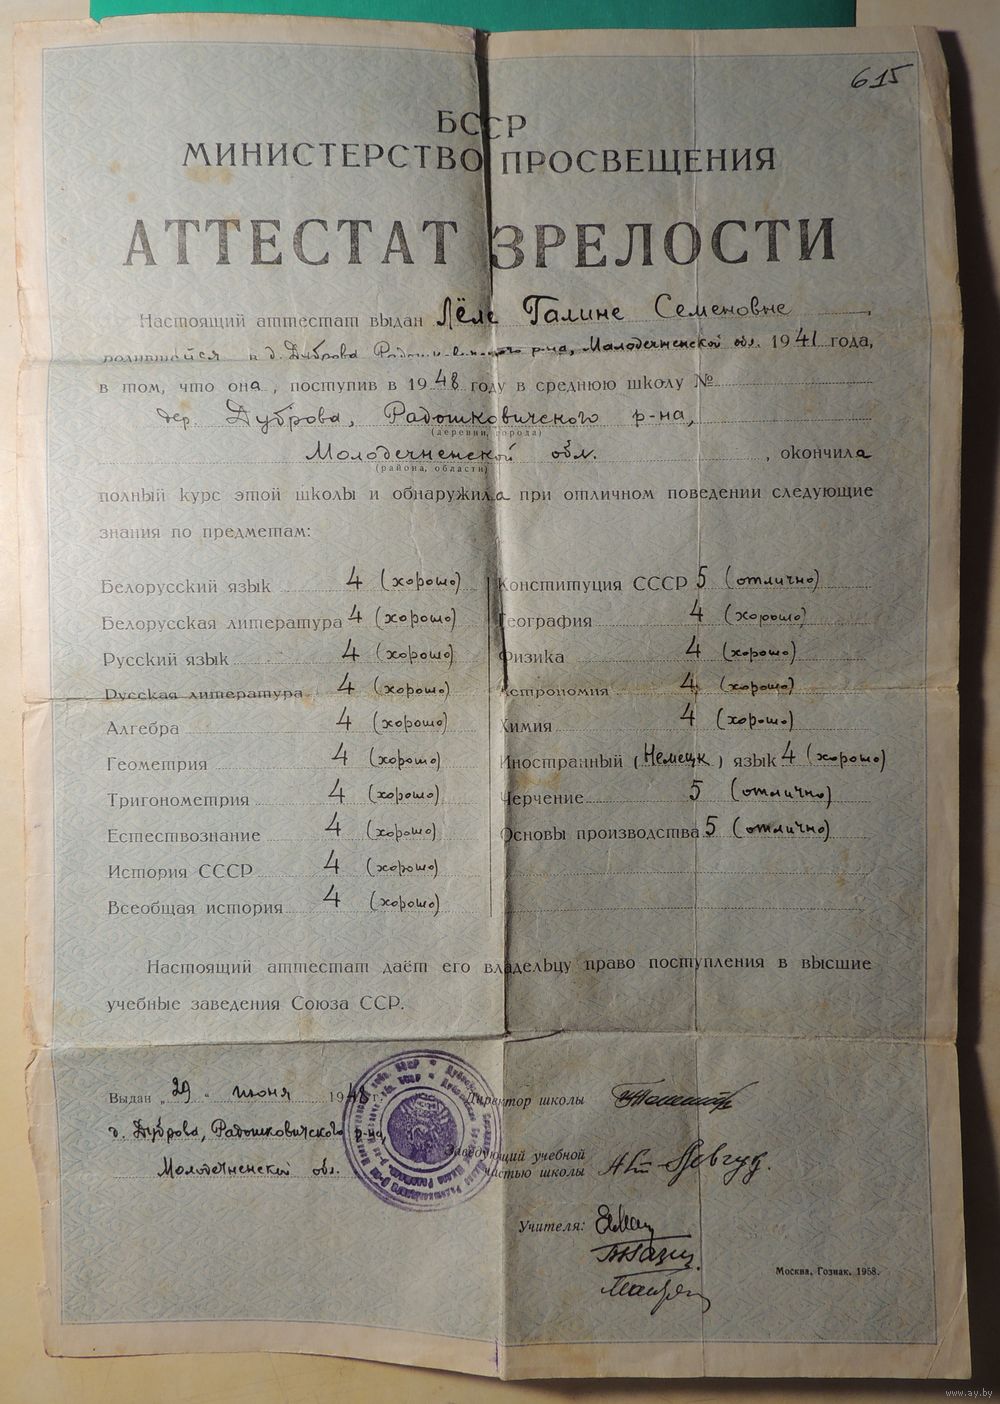 615
БССР
МИНИСТЕРСТВО ПРОСВЕЩЕНИЯ
АТТЕСТАТ ЗРЕЛОСТИ
Настоящий аттестат выдан Лёле Галине Семеновне,
родившейся в д. Дуброва Радошковичского р-на, Молодечненской обл. 1941 года,
в том, что она, поступив в 1948 году в среднюю школу №
дер. Дуброва, Радошковичского р-на,
(деревни, города)
Молодечненской обл., окончила
(района, области)
полный курс этой школы и обнаружила при отличном поведении следующие
знания по предметам:
Белорусский язык 4 (хорошо)
Белорусская литература 4 (хорошо)
Русский язык 4 (хорошо)
Русская литература 4 (хорошо)
Алгебра 4 (хорошо)
Геометрия 4 (хорошо)
Тригонометрия 4 (хорошо)
Естествознание 4 (хорошо)
История СССР 4 (хорошо)
Всеобщая история 4 (хорошо)
Конституция СССР 5 (отлично)
География 4 (хорошо)
Физика 4 (хорошо)
Астрономия 4 (хорошо)
Химия 4 (хорошо)
Иностранный (Немецк) язык 4 (хорошо)
Черчение 5 (отлично)
Основы производства 5 (отлично)
Настоящий аттестат даёт его владельцу право поступления в высшие
учебные заведения Союза ССР.
Выдан „29" июня 19 г.
д. Дуброва, Радошковичского р-на,
Молодечненской обл.
Директор школы
Заведующий учебной
частью школы
Учителя:
Москва, Гознак, 1958.
www.ay.by